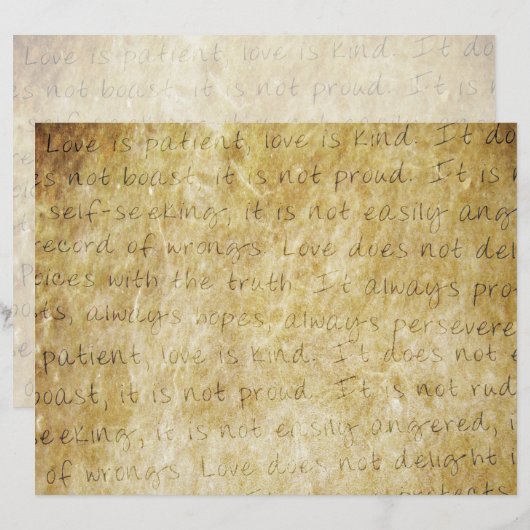 Love is patient, love is kind. It do
s not boast, it is not proud. It is
Love is patient, love is kind. It d
es not boast, it is not proud. It is n
self-seeking, it is not easily ang
record of wrongs. Love does not del
oices with the truth. It always pro
ts, always hopes, always persevere
patient, love is kind. It does not e
boast, it is not proud. It is not rud
eeking, it is not easily angered, i
of wrongs. Love does not delight i